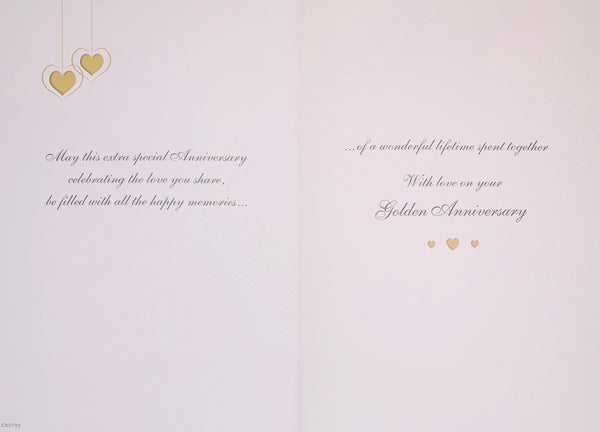 May this extra special Anniversary
celebrating the love you share,
be filled with all the happy memories...
...of a wonderful lifetime spent together
With love on your
Golden Anniversary
C80733